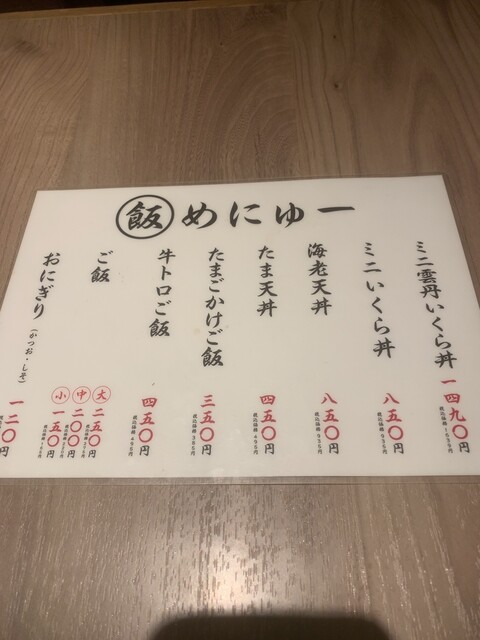 飯 めにゅー
ミニ雲丹いくら丼
一四九〇円
ミニいくら丼
八五〇円
税込価格 935円
海老天丼
八五〇円
税込価格 935円
たま天丼
四五〇円
税込価格 495円
たまごかけご飯
三五〇円
税込価格 385円
牛トロご飯
四五〇円
税込価格 495円
ご飯
大 二五〇円
中 二〇〇円
小 一五〇円
おにぎり（かつお・しそ）
一二〇円